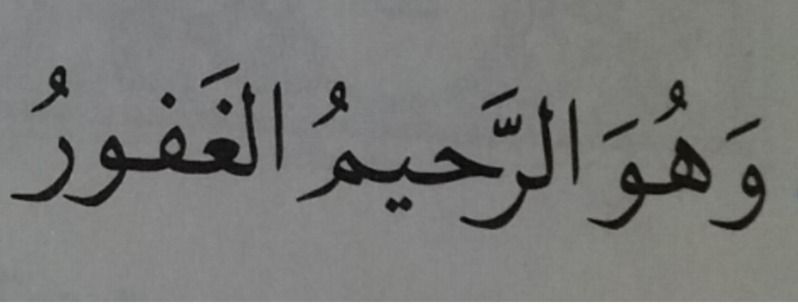 وَهُوَ الرَّحيمُ الغَفورُ